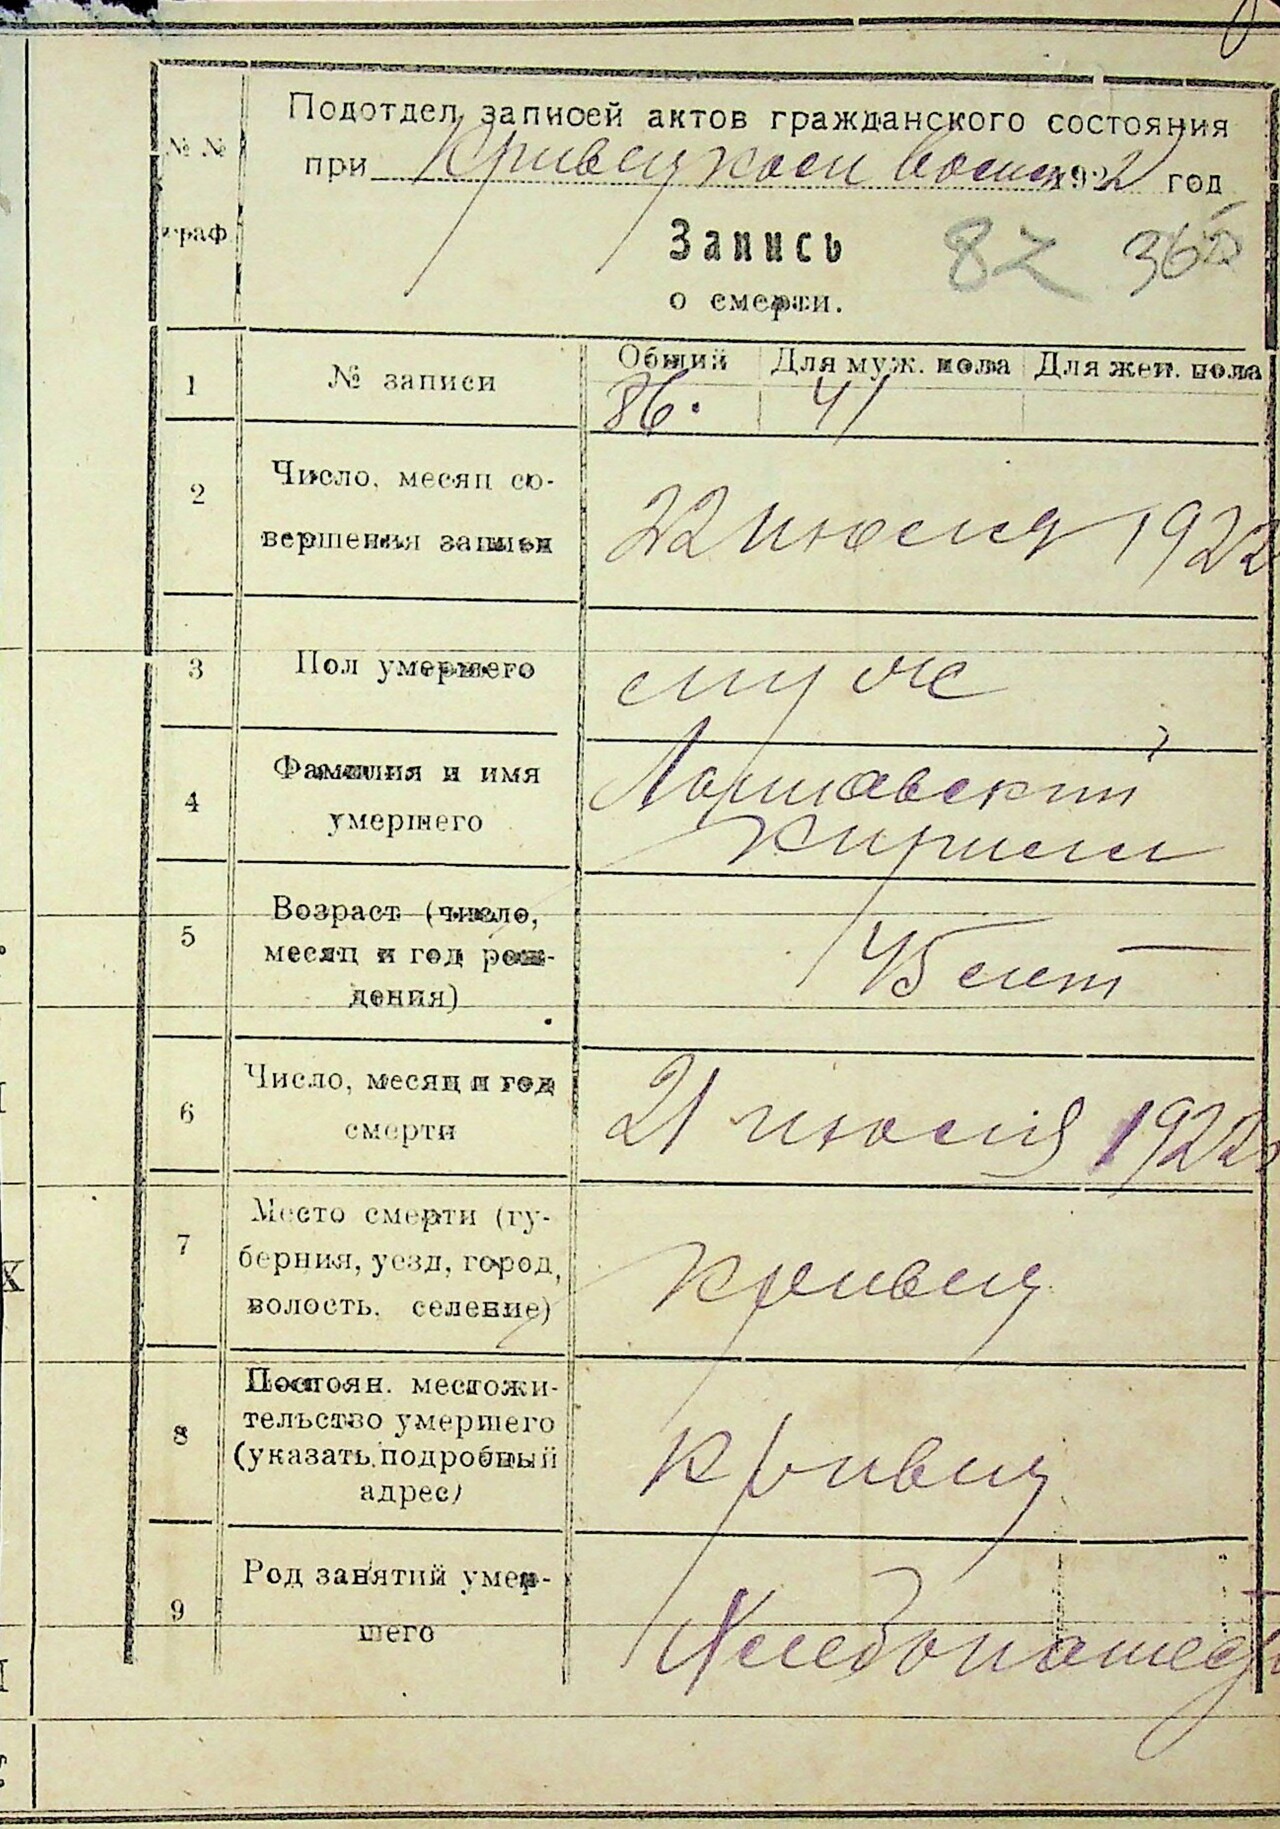 № № граф
Подотдел записей актов гражданского состояния
при Кривецком Волис 1922 год
Запись
о смерти.
82 36
1 № записи
Общий Для муж. пола Для жен. пола
86. 41
2 Число, месяц со-
вершения записи
22 июля 1922
3 Пол умершего
муж
4 Фамилия и имя
умершего
Лоршавский
Кирилл
5 Возраст (число,
месяц и год рож-
дения)
45 лет
6 Число, месяц и год
смерти
21 июля 1922
7 Место смерти (гу-
берния, уезд, город,
волость, селение)
Кривец
8 Постоян. местожи-
тельство умершего
(указать подробный
адрес)
Кривец
9 Род занятий умер-
шего
Хлебопашец